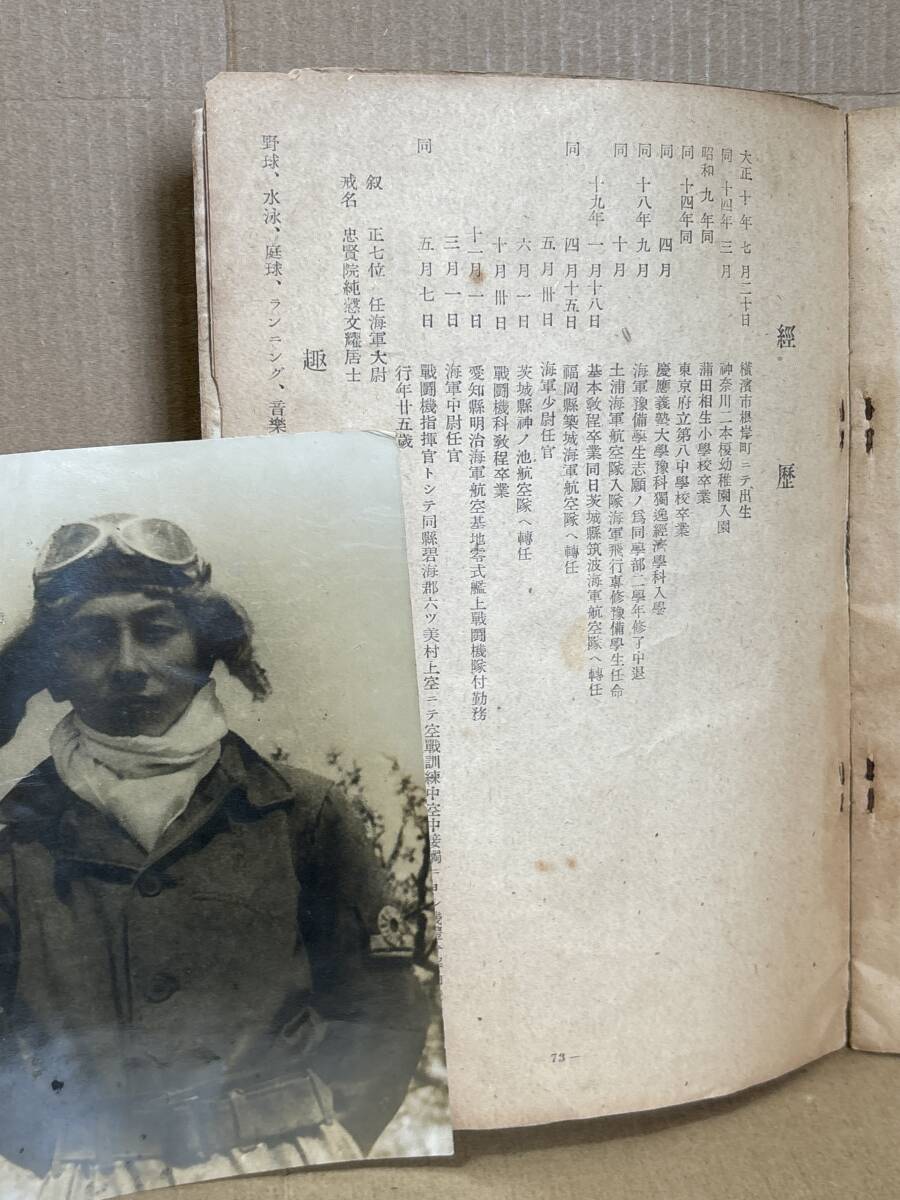 經歷
大正十年七月二十日 橫濱市根岸町ニテ出生
同十四年三月 神奈川二本榎幼稚園入園
昭和九年同 蒲田相生小學校卒業
同十四年同 東京府立第八中學校卒業
同 四月 慶應義塾大學豫科獨逸經濟學科入學
同十八年九月 海軍豫備學生志願ノ爲同學部二學年修了中退
同 十月 土浦海軍航空隊入隊海軍飛行專修豫備學生任命
十九年一月十八日 基本敎程卒業同日茨城縣筑波海軍航空隊ヘ轉任
同 四月十五日 福岡縣築城海軍航空隊ヘ轉任
五月卅日 海軍少尉任官
六月一日 茨城縣神ノ池航空隊ヘ轉任
十月卅日 戰鬪機科敎程卒業
十二月一日 愛知縣明治海軍航空基地零式艦上戰鬪機隊付勤務
三月一日 海軍中尉任官
同 五月七日 戰鬪機指揮官トシテ同縣碧海郡六ツ美村上空ニテ空戰訓練中空中接觸
行年廿五歲
叙 正七位 任海軍大尉
戒名 忠賢院純懿文耀居士
趣
野球、水泳、庭球、ランニング、音樂
73